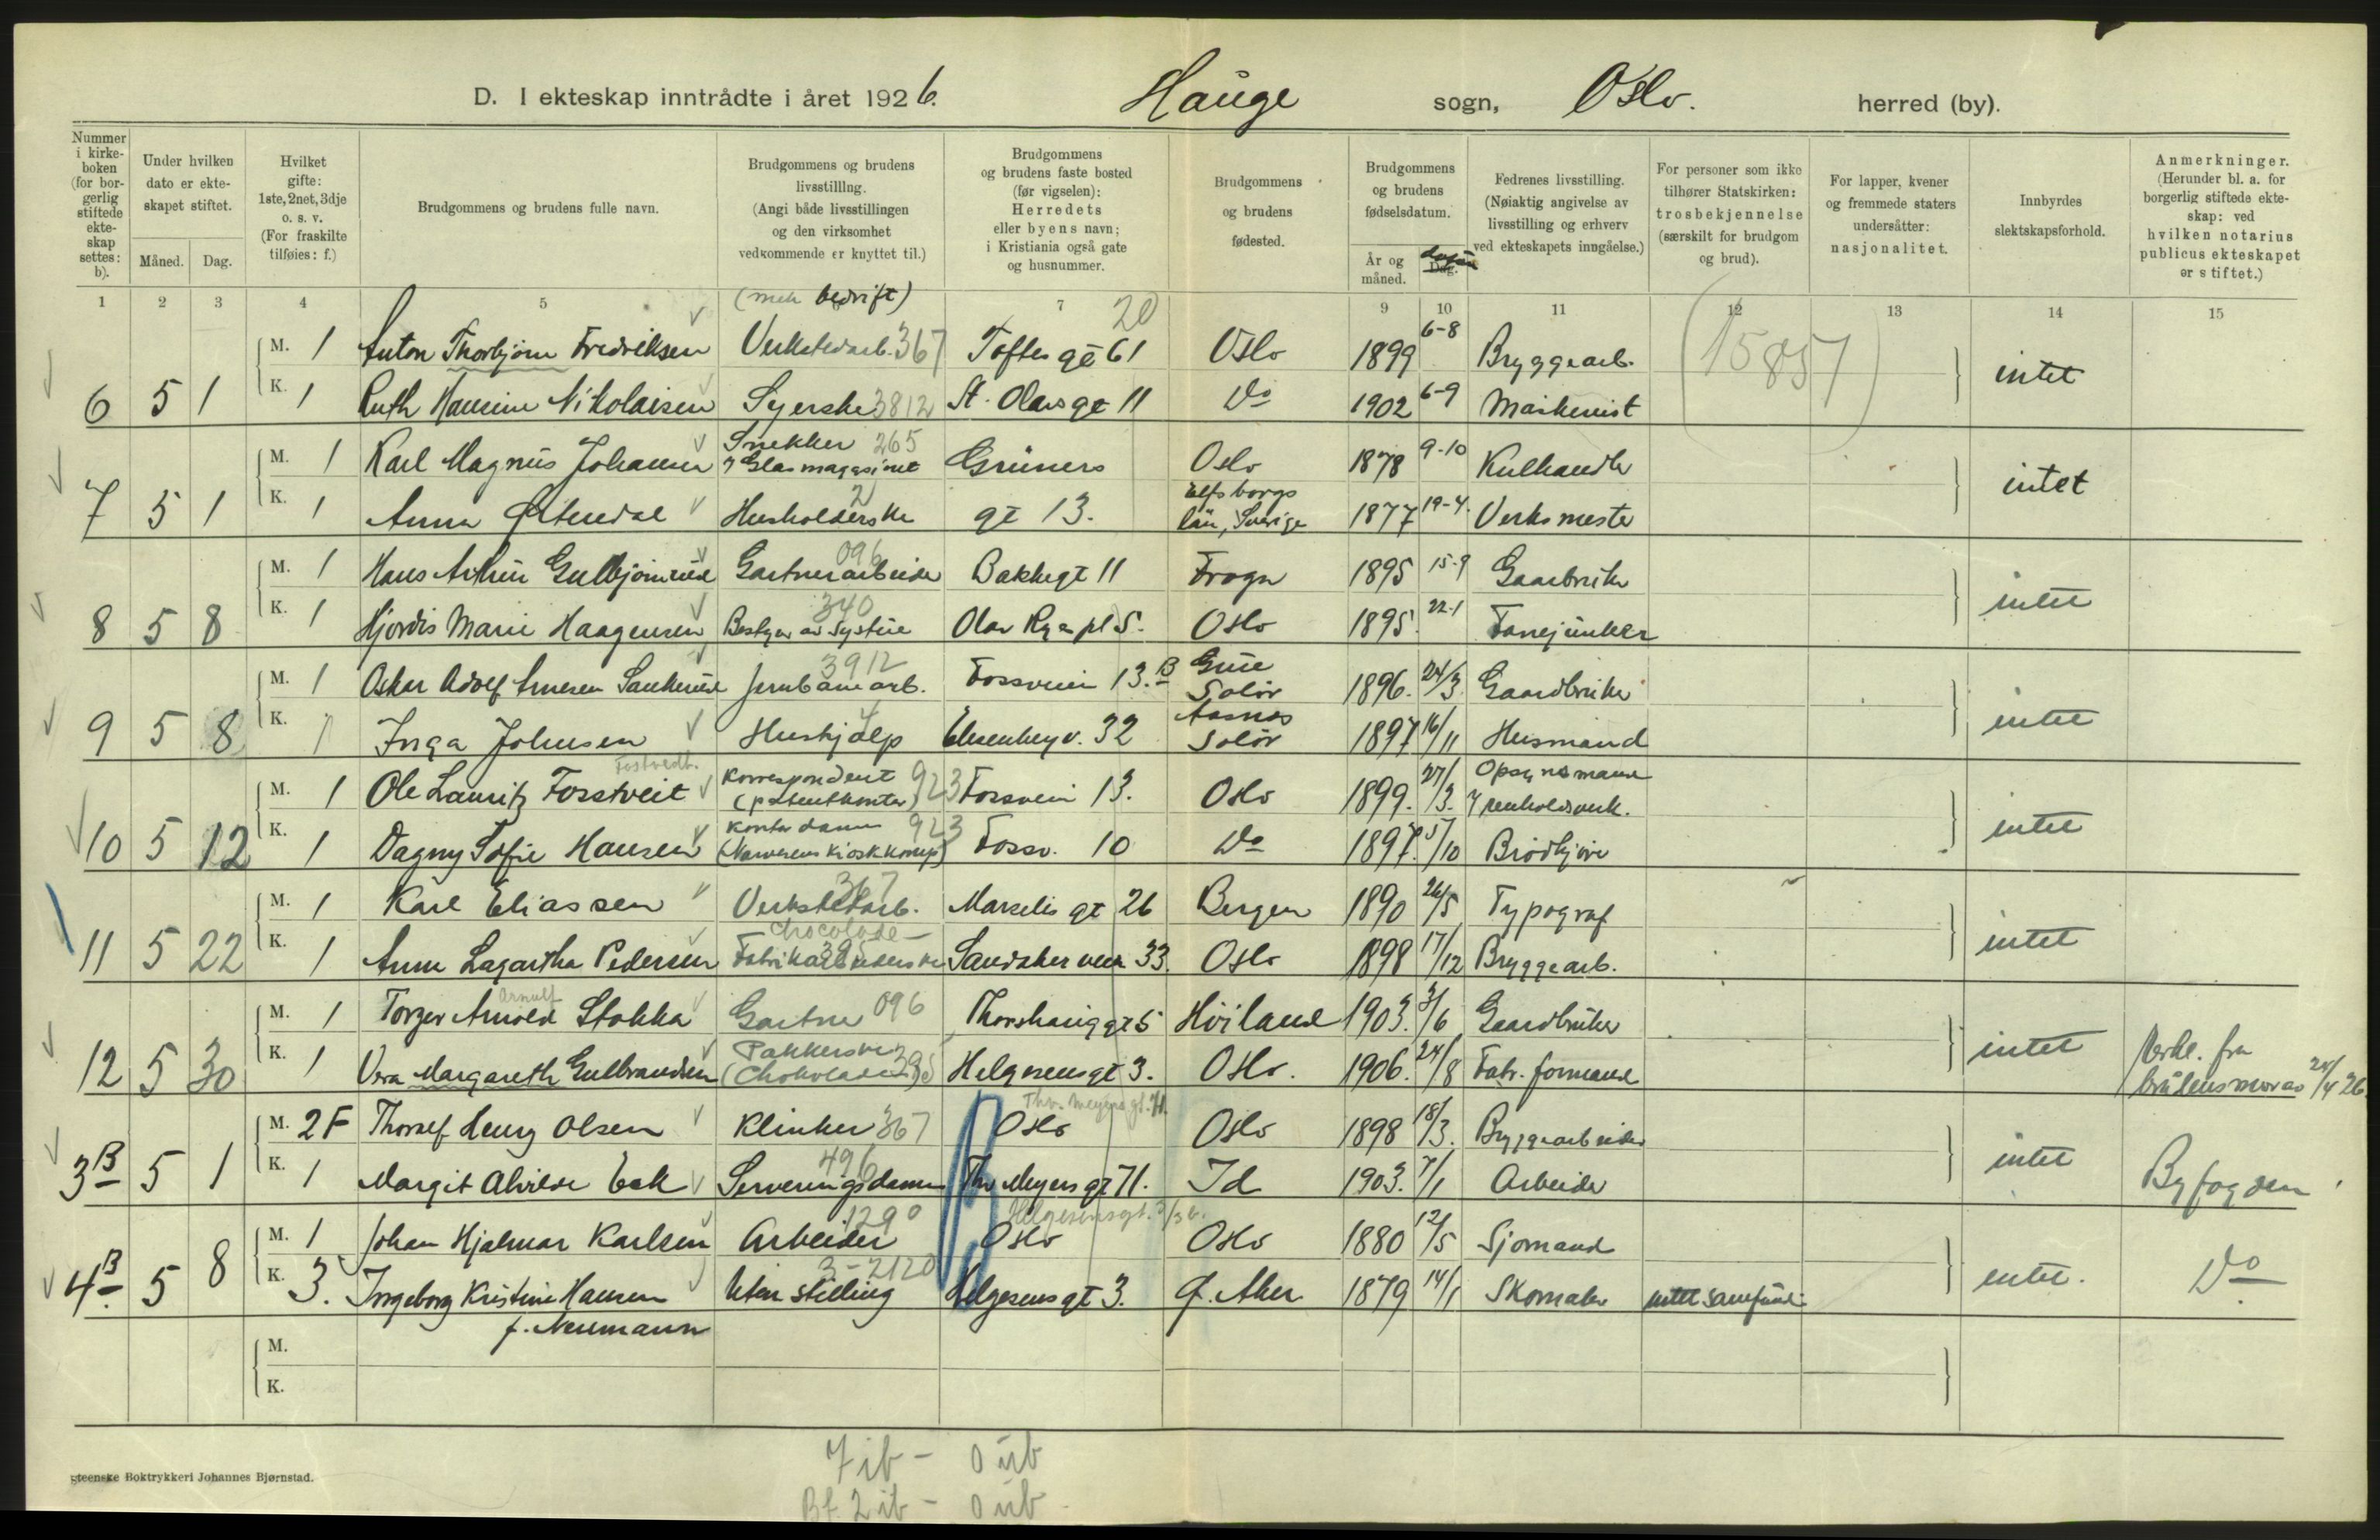 D. I ekteskap inntrådte i året 1926. Hauge sogn, Oslo. herred (by).
Nummer i kirkeboken (for borgerlig stiftede ekteskap settes: b).
Under hvilken dato er ekteskapet stiftet.
Måned. Dag.
Hvilket gifte: 1ste, 2net, 3dje o. s. v. (For fraskilte tilføies: f.)
Brudgommens og brudens fulle navn.
Brudgommens og brudens livsstilling. (Angi både livsstillingen og den virksomhet vedkommende er knyttet til.)
Brudgommens og brudens faste bosted (før vigselen): Herredets eller byens navn; i Kristiania også gate og husnummer.
Brudgommens og brudens fødested.
Brudgommens og brudens fødselsdatum.
År og måned. Dag.
Fedrenes livsstilling. (Nøiaktig angivelse av livsstilling og erhverv ved ekteskapets inngåelse.)
For personer som ikke tilhører Statskirken: trosbekjennelse (særskilt for brudgom og brud).
For lapper, kvener og fremmede staters undersåtter: nasjonalitet.
Innbyrdes slektskapsforhold.
Anmerkninger. (Herunder bl. a. for borgerlig stiftede ekteskap: ved hvilken notarius publicus ekteskapet er stiftet.)
(meh bedrift)
1 2 3 4 5 7 9 10 11 12 13 14 15
20
(15857)
M. 1 Anton Thorbjørn Fredriksen Verkstedarb. 367 Toftes gt 61 Oslo 1899 6-8 Bryggearb.
6 5 1 K. 1 Ruth Hansine Nikolaisen Syerske 3812 St. Olavs gt 11 Do 1902 6-9 Maskinist intet
M. 1 Karl Magnus Johansen Snekker 265 i Glasmagasinet Grüners Oslo 1878 9-10 Kulhandler
7 5 1 K. 1 Anna Husholderske 2 gt 13. Elfsborgs län, Sverige 1877 19-4. Verksmester intet
M. 1 Hans Arthur Gulbjørnrud Gartnerarbeider 096 Bakkegt 11 Frogn 1895 15-9 Gaarbruker
8 5 8 K. 1 Hjørdis Marie Haagensen Bestyrer av systue 340 Olav Ryes pl 5. Oslo 1895. 22-1 Fanejunker intet
M. 1 Oskar Adolf Arnesen Sankerud Jernbanearb. 3912 Fossveien 13.B Grue Solør 1896. 24/3 Gaardbruker
9 5 8 K. 1 Inga Johnsen Hushjælp 32 Aasnes Solør 1897 16/11 Husmand intet
M. 1 Ole Lauritz Forstveit Korrespondent (patentkontor) 923 Fossveien 13. Oslo 1899. 27/3. Opsynsmand i renholdsverk.
10 5 12 K. 1 Dagny Sofie Hansen Kontordame (Narvesens Kioskkomp) 923 Fossv. 10 Do 1897. 5/10 Intet
M. 1 Karl Eliassen Verkstedarb. 367 Marselis gt 26 Bergen 1890 26/5 Typograf
11 5 22 K. 1 Anna Lagartha Pedersen Chocolade- Fabrikarbeiderske 395 Sandakerveien 33. Oslo 1898 17/12 Bryggearb. intet
M. 1 Torger Arnold Stokka Arnulf Gartner 096 Thorshauggt 5 Høiland 1903. 3/6 Gaardbruker
12 5 30 K. 1 Vera Margareth Gulbrandsen Pakkerske (Chokolade) 395 Helgesensgt 3. Oslo. 1906. 24/8 Fabr. formand intet
24/4 26.
Thv. Meyers gt. 71.
M. 2F Thorlef Henry Olsen Klinker 367 Oslo Oslo 1898 18/3. Bryggearbeider
3B 5 1 K. 1 Margit Alvilde Bak Serveringsdame 496 Thv Meyers gt 71. Id 1903. 7/1 Arbeider intet Byfogden
Helgesensgt. 3
M. 1 Johan Hjalmar Karlsen Arbeider 1290 Oslo Oslo 1880 12/5 Sjømand
4B. 5 8 K. 3. Ingeborg Kristine Hansen Uten stilling 3-2120 Helgesens gt 3. Ø. Aker 1879 14/1 Skomaker intet samfund intet. Do
f. Neumann
M.
K.
7 ib - 0 ub
Bf. 2 ib - 0 ub
Boktrykkeri Johannes Bjørnstad.